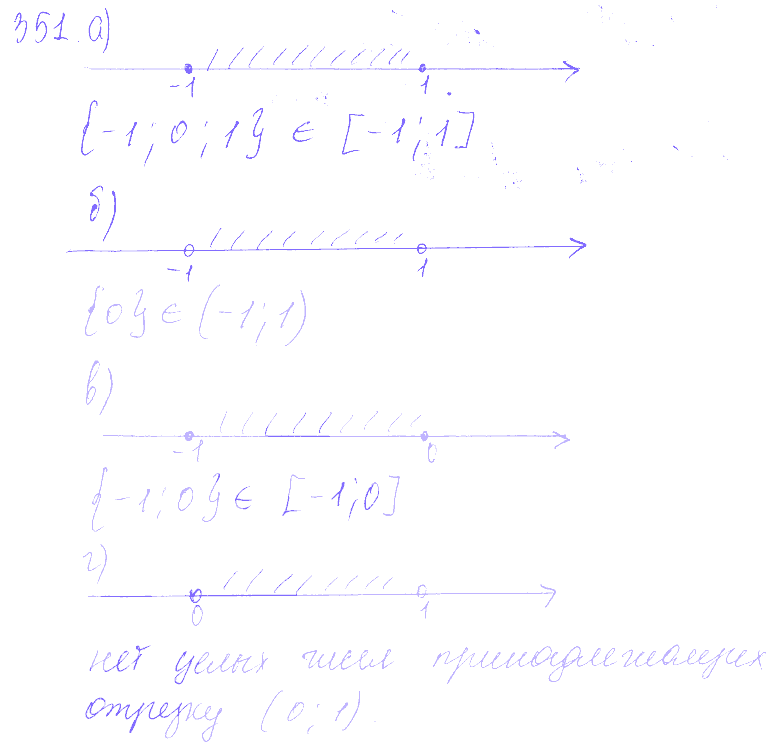 351. а)
-1 1
{-1; 0; 1} ∈ [-1; 1]
б)
-1 1
{0} ∈ (-1; 1)
в)
-1 0
{-1; 0} ∈ [-1; 0]
г)
0 1
нет целых чисел принадлежащих
отрезку (0; 1).